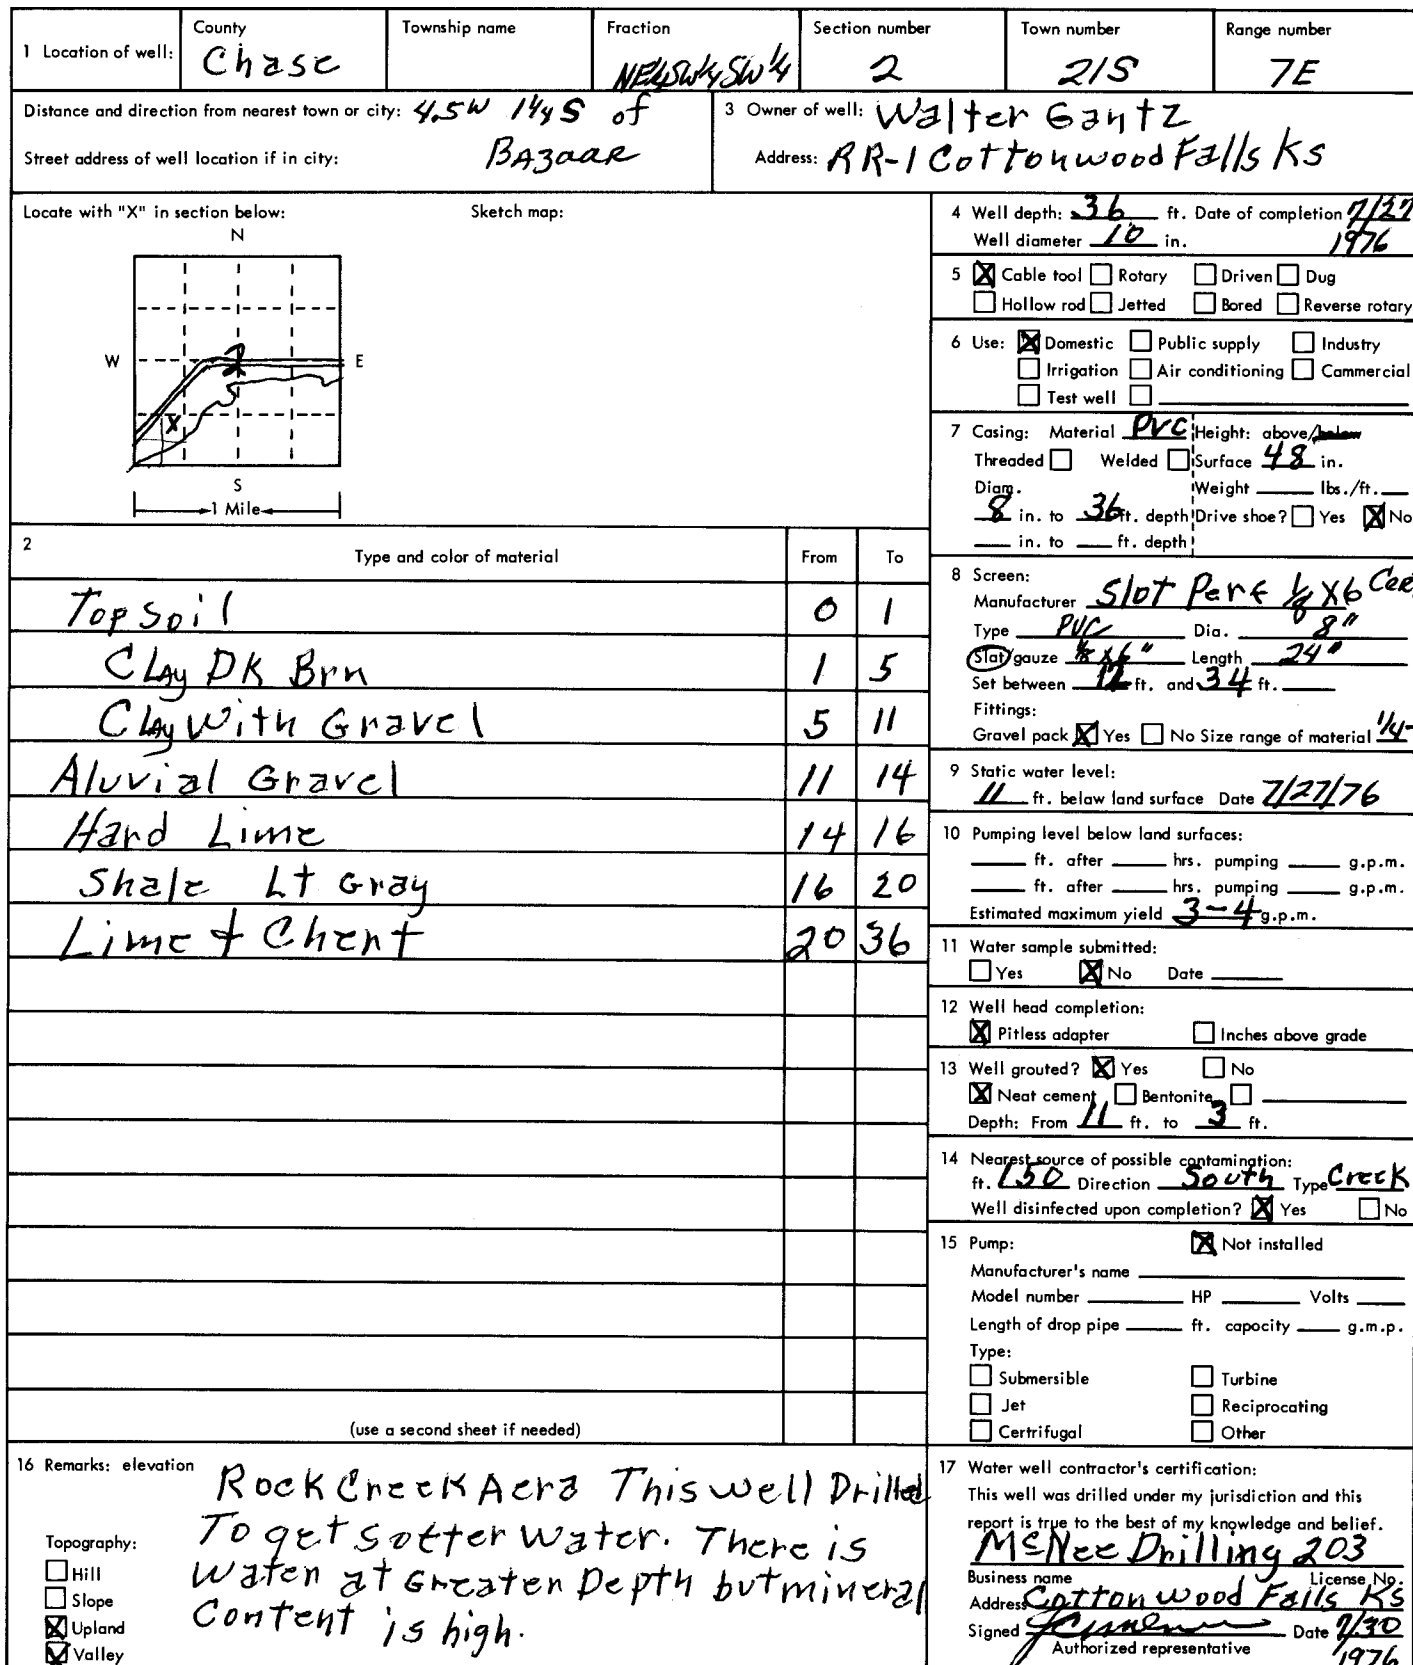 1 Location of well: County Chase Township name Fraction NE¼SW¼SW¼ Section number 2 Town number 21S Range number 7E
Distance and direction from nearest town or city: 4.5W 1¼S of
Street address of well location if in city: BAZaaR
3 Owner of well: Walter Gantz
Address: RR-1 Cottonwood Falls Ks
Locate with "X" in section below: Sketch map:
N
W 2 E
X
S
1 Mile
2 Type and color of material From To
Top Soil 0 1
Clay DK Brn 1 5
Clay With Gravel 5 11
Aluvial Gravel 11 14
Hard Lime 14 16
Shale Lt Gray 16 20
Lime + Chert 20 36
(use a second sheet if needed)
4 Well depth: 36 ft. Date of completion 7/27
Well diameter 10 in. 1976
5 X Cable tool Rotary Driven Dug
Hollow rod Jetted Bored Reverse rotary
6 Use: X Domestic Public supply Industry
Irrigation Air conditioning Commercial
Test well
7 Casing: Material PVC Height: above/below
Threaded Welded Surface 48 in.
Diam. Weight lbs./ft.
8 in. to 36 ft. depth Drive shoe? Yes X No
in. to ft. depth
8 Screen:
Manufacturer Slot Perf 1/8 X6
Type PVC Dia. 8"
Slat/gauze 1/8 X6" Length 24"
Set between 12 ft. and 34 ft.
Fittings:
Gravel pack X Yes No Size range of material 1/4-
9 Static water level:
11 ft. below land surface Date 7/27/76
10 Pumping level below land surfaces:
ft. after hrs. pumping g.p.m.
ft. after hrs. pumping g.p.m.
Estimated maximum yield 3-4 g.p.m.
11 Water sample submitted:
Yes X No Date
12 Well head completion:
X Pitless adapter Inches above grade
13 Well grouted? X Yes No
X Neat cement Bentonite
Depth: From 11 ft. to 3 ft.
14 Nearest source of possible contamination:
ft. 150 Direction South Type Creek
Well disinfected upon completion? X Yes No
15 Pump: X Not installed
Manufacturer's name
Model number HP Volts
Length of drop pipe ft. capacity g.m.p.
Type:
Submersible Turbine
Jet Reciprocating
Certrifugal Other
16 Remarks: elevation Rock Creek Aera This well Drilled
To get Softer Water. There is
Water at Greater Depth but mineral
Content is high.
Topography:
Hill
Slope
X Upland
X Valley
17 Water well contractor's certification:
This well was drilled under my jurisdiction and this
report is true to the best of my knowledge and belief.
McNee Drilling 203
Business name License No.
Address Cottonwood Falls KS
Signed Date 7/30
Authorized representative 1976